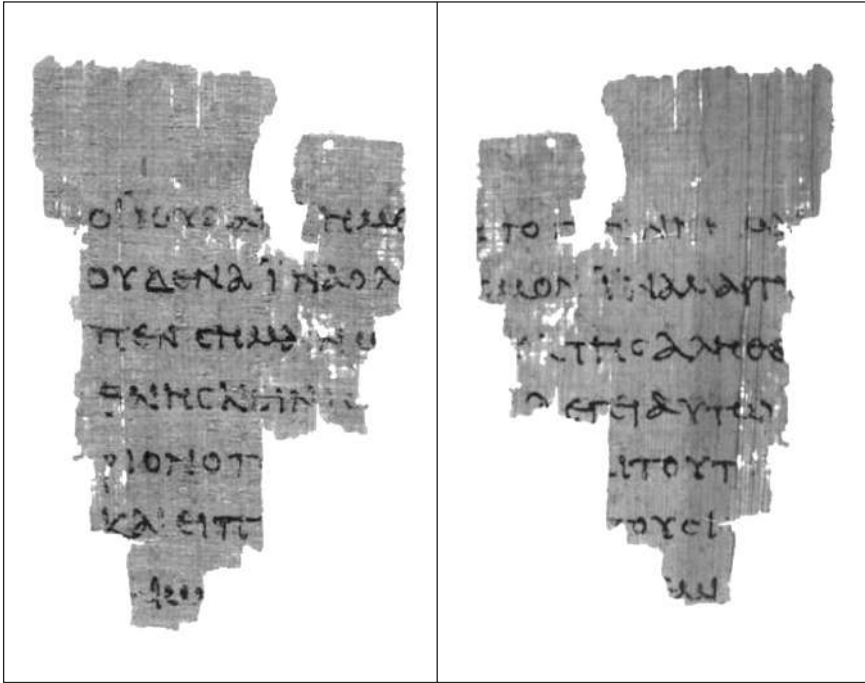 ΟΙ ΙΟΥΔΑΙ ΗΜΕ
ΟΥΔΕΝΑ ΪΝΑ Ο Λ
ΠΕΝ CΗΜΑΙΝΩ
ΘΝΗCΚΕΙΝ
ΡΙΟΝ Ο Π
ΚΑΙ ΕΙΠ
ΤΟ ΓΕΝΝΗΜΑΙ
CΜΟΝ ΪΝΑ ΜΑΡΤΥ
ΤΗC ΑΛΗΘΕ
ΛΕΓΕΙ ΑΥΤΩ
ΑΙ ΤΟΥΤ
ΤΟΥC Ι